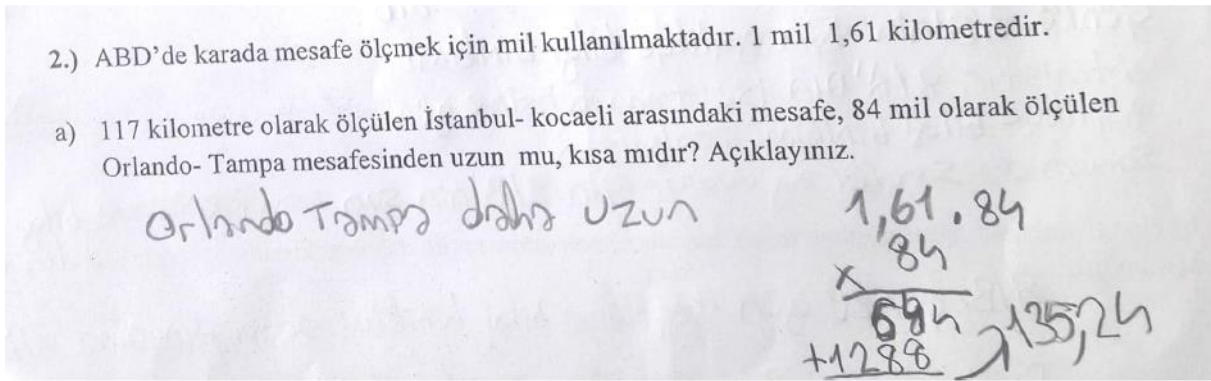 2.) ABD'de karada mesafe ölçmek için mil kullanılmaktadır. 1 mil 1,61 kilometredir.
a) 117 kilometre olarak ölçülen İstanbul- kocaeli arasındaki mesafe, 84 mil olarak ölçülen
Orlando- Tampa mesafesinden uzun mu, kısa mıdır? Açıklayınız.
Orlando Tampa daha uzun
1,61 . 84
84
x
644
+1288
135,24